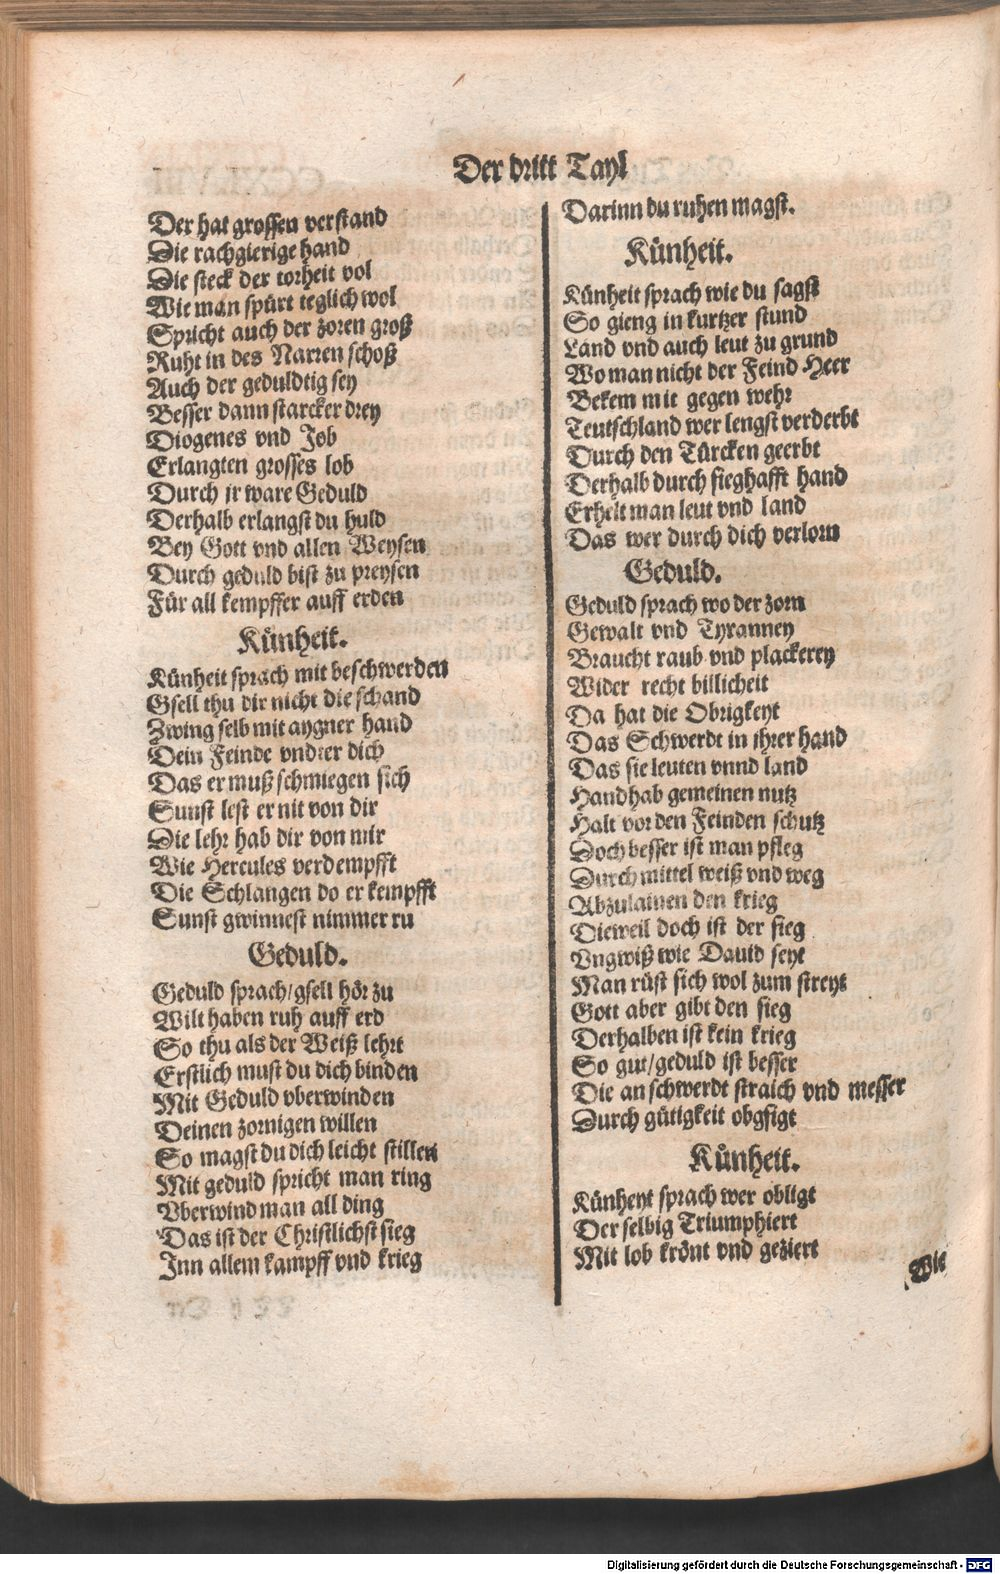 Der dritt Tayl
Der hat grossen verstand
Die rachgierige hand
Die steck der torheit vol
Wie man spürt teglich wol
Spricht auch der zoren groß
Ruht in des Narren schoß
Auch der geduldtig sey
Besser dann starcker drey
Diogenes vnd Job
Erlangten grosses lob
Durch jr ware Geduld
Derhalb erlangst du huld
Bey Gott vnd allen Weysen
Durch geduld bist zu preysen
Für all kempffer auff erden
Künheit.
Künheit sprach mit beschwerden
Gsell thu dir nicht die schand
Zwing selb mit aygner hand
Dein Feinde vndter dich
Das er muß schmiegen sich
Sunst lest er nit von dir
Die lehr hab dir von mir
Wie Hercules verdempfft
Die Schlangen do er kempfft
Sunst gwinnest nimmer ru
Geduld.
Geduld sprach/gsell hör zu
Wilt haben ruh auff erd
So thu als der Weiß lehrt
Erstlich must du dich binden
Mit Geduld vberwinden
Deinen zornigen willen
So magst du dich leicht stillen
Mit geduld spricht man ring
Vberwind man all ding
Das ist der Christlichst sieg
Inn allem kampff vnd krieg
Darinn du ruhen magst.
Künheit.
Künheit sprach wie du sagst
So gieng in kurtzer stund
Land vnd auch leut zu grund
Wo man nicht der Feind Heer
Bekem mit gegen wehr
Teutschland wer lengst verderbt
Durch den Türcken geerbt
Derhalb durch sieghafft hand
Erhelt man leut vnd land
Das wer durch dich verlorn
Geduld.
Geduld sprach wo der zorn
Gewalt vnd Tyranney
Braucht raub vnd plackerey
Wider recht billicheit
Da hat die Obrigkeyt
Das Schwerdt in ihrer hand
Das sie leuten vnnd land
Handhab gemeinen nutz
Halt vor den Feinden schutz
Doch besser ist man pfleg
Durch mittel weiß vnd weg
Abzulainen den krieg
Dieweil doch ist der sieg
Vngwiß wie Dauid seyt
Man rüst sich wol zum streyt
Gott aber gibt den sieg
Derhalben ist kein krieg
So gut/geduld ist besser
Die an schwerdt straich vnd messer
Durch gütigkeit obgsigt
Künheit.
Künheyt sprach wer obligt
Der selbig Triumphiert
Mit lob krönt vnd geziert
Wie
Digitalisierung gefördert durch die Deutsche Forschungsgemeinschaft - DFG